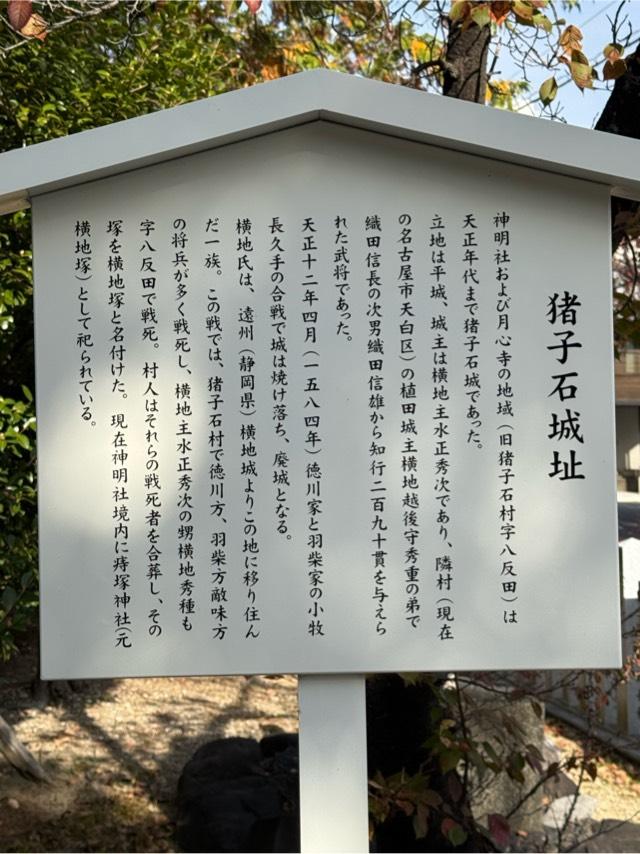 猪子石城址
神明社および月心寺の地域（旧猪子石村字八反田）は
天正年代まで猪子石城であった。
立地は平城、城主は横地主水正秀次であり、隣村（現在
の名古屋市天白区）の植田城主横地越後守秀重の弟で
織田信長の次男織田信雄から知行二百九十貫を与えら
れた武将であった。
天正十二年四月（一五八四年）徳川家と羽柴家の小牧
長久手の合戦で城は焼け落ち、廃城となる。
横地氏は、遠州（静岡県）横地城よりこの地に移り住ん
だ一族。この戦では、猪子石村で徳川方、羽柴方敵味方
の将兵が多く戦死し、横地主水正秀次の甥横地秀種も
字八反田で戦死。村人はそれらの戦死者を合葬し、その
塚を横地塚と名付けた。現在神明社境内に痔塚神社（元
横地塚）として祀られている。